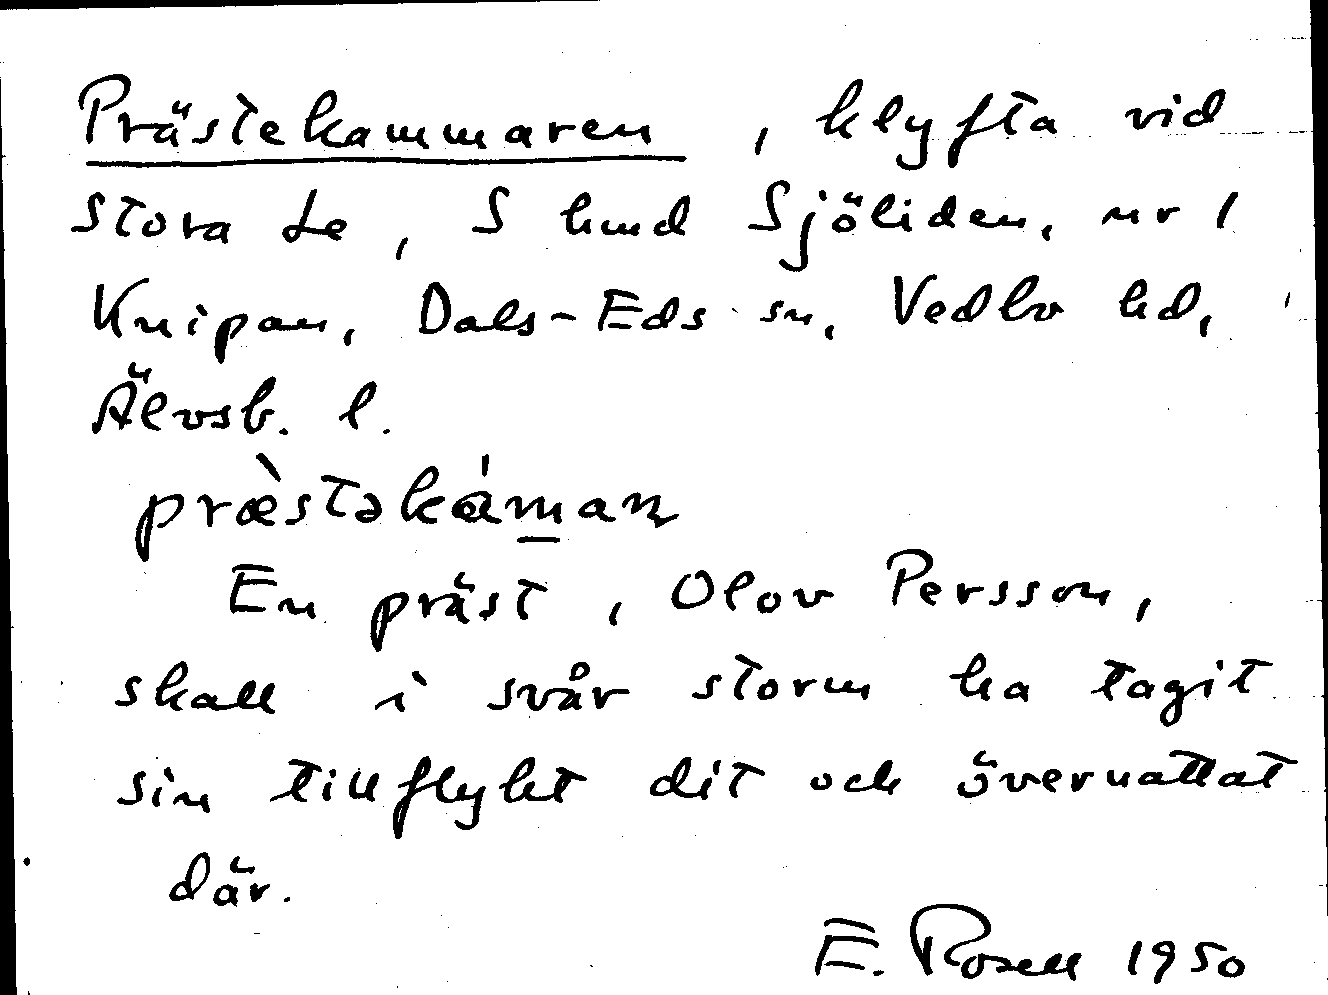 Prästekammaren, klyfta vid
Stora Le, S lund Sjöliden, nr 1
Knipan, Dals-Eds sn, Vedbo hd,
Älvsb. l.
præ̀stəkɑ́m̲an
En präst, Olov Persson,
skall i svår storm ha tagit
sin tillflykt dit och övernattat
där.
E. Rosell 1950